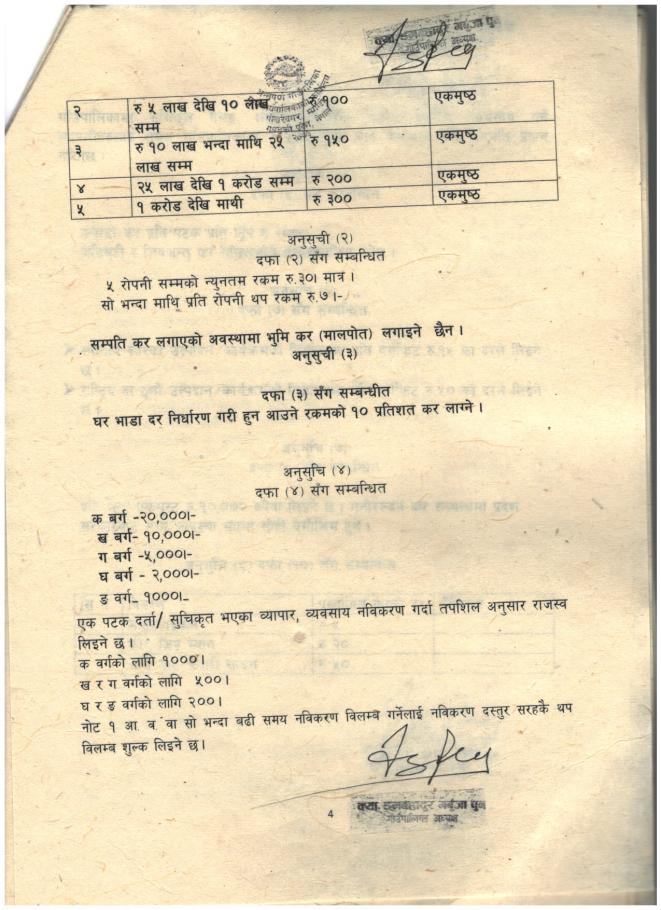 क्या. डमबहादुर गर्बुजा पुन
गाउँपालिका अध्यक्ष
२ रु ५ लाख देखि १० लाख रु १०० एकमुष्ठ
सम्म
३ रु १० लाख भन्दा माथि २५ रु १५० एकमुष्ठ
लाख सम्म
४ २५ लाख देखि १ करोड सम्म रु २०० एकमुष्ठ
५ १ करोड देखि माथी रु ३०० एकमुष्ठ
अनुसुची (२)
दफा (२) सँग सम्बन्धित
५ रोपनी सम्मको न्युनतम रकम रु.३०। मात्र ।
सो भन्दा माथि प्रति रोपनी थप रकम रु.७।-
सम्पति कर लगाएको अवस्थामा भुमि कर (मालपोत) लगाइने छैन ।
अनुसुची (३)
दफा (३) सँग सम्बन्धीत
घर भाडा दर निर्धारण गरी हुन आउने रकमको १० प्रतिशत कर लाग्ने ।
अनुसुचि (४)
दफा (४) सँग सम्बन्धित
क बर्ग -२०,०००।-
ख बर्ग- १०,०००।-
ग बर्ग -५,०००।-
घ बर्ग - २,०००।-
ङ वर्ग- १०००।-
एक पटक दर्ता/ सुचिकृत भएका व्यापार, व्यवसाय नविकरण गर्दा तपशिल अनुसार राजस्व
लिइने छ ।
क वर्गको लागि १००० ।
ख र ग वर्गको लागि ५०० ।
घ र ङ वर्गको लागि २०० ।
नोट १ आ. व. वा सो भन्दा बढी समय नविकरण विलम्ब गर्नेलाई नविकरण दस्तुर सरहकै थप
विलम्ब शुल्क लिइने छ ।
4
क्या. डमबहादुर गर्बुजा पुन
गाउँपालिका अध्यक्ष